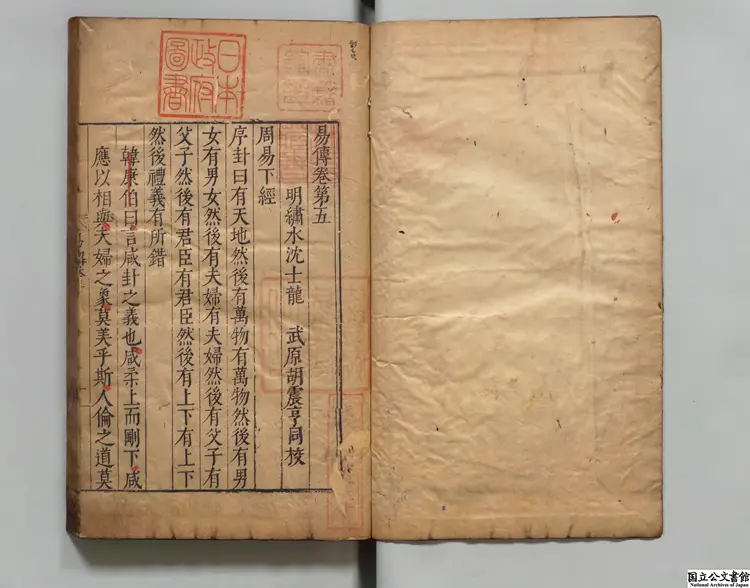 易傳卷第五
明繡水沈士龍 武原胡震亨同校
周易下經
序卦曰有天地然後有萬物有萬物然後有男
女有男女然後有夫婦有夫婦然後有父子有
父子然後有君臣有君臣然後有上下有上下
然後禮義有所錯
韓康伯曰言咸卦之義也咸柔上而剛下咸
應以相與夫婦之象莫美乎斯人倫之道莫
日本
政府
圖書
国立公文書館
National Archives of Japan